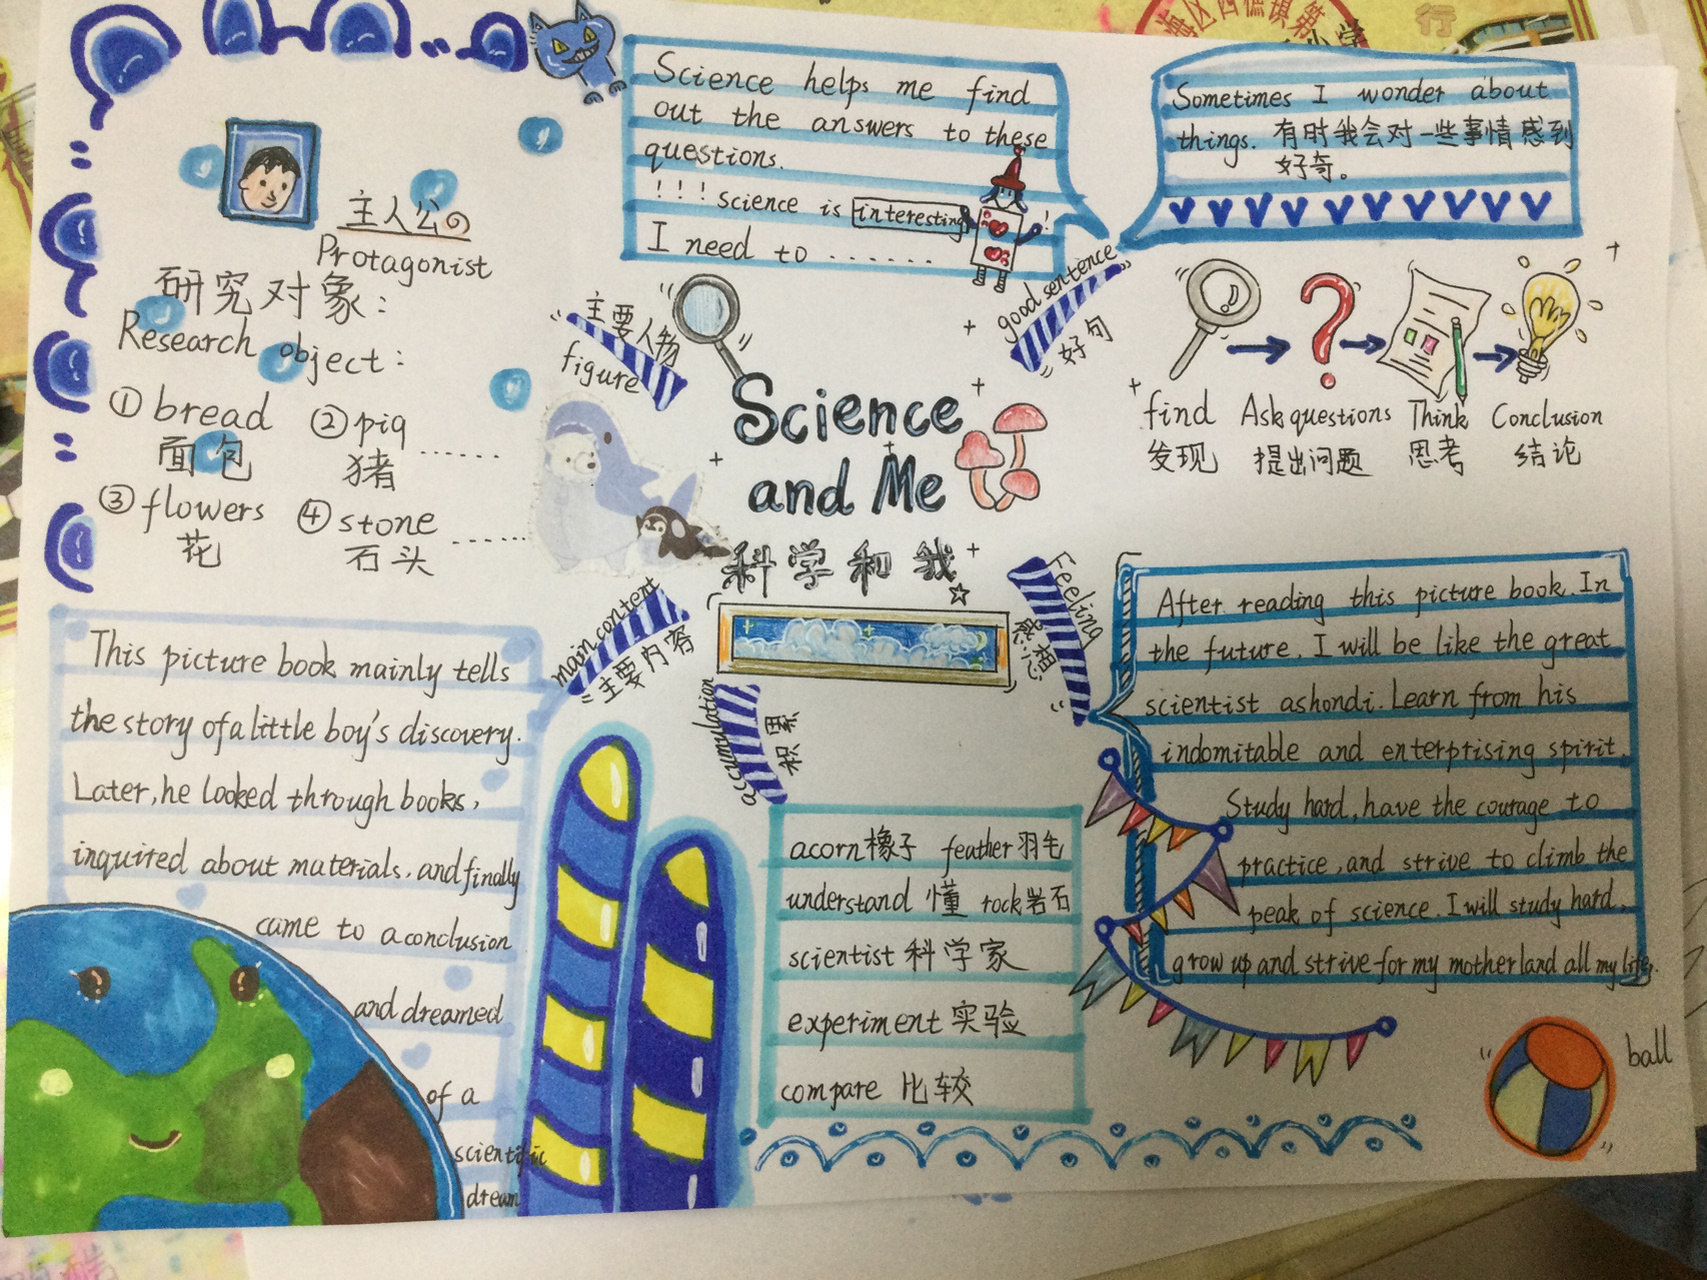 Science helps me find
out the answers to these
questions.
!!! science is interesting!
I need to ......
Sometimes I wonder about
things. 有时我会对一些事情感到
好奇。
主人公
Protagonist
研究对象:
Research object:
① bread ② pig ......
面包 猪
③ flowers ④ stone ......
花 石头
主要人物
figure
good sentence
好句
find Ask questions Think Conclusion
发现 提出问题 思考 结论
Science
and Me
科学和我
main content
主要内容
This picture book mainly tells
the story of a little boy's discovery.
Later, he looked through books,
inquired about materials, and finally
came to a conclusion
and dreamed
of a
scientific
dream
accumulation
积累
acorn 橡子 feather 羽毛
understand 懂 rock 岩石
scientist 科学家
experiment 实验
compare 比较
Feeling
感想
After reading this picture book. In
the future, I will be like the great
scientist ashondi. Learn from his
indomitable and enterprising spirit.
Study hard, have the courage to
practice, and strive to climb the
peak of science. I will study hard,
grow up and strive for my motherland all my life.
ball
行